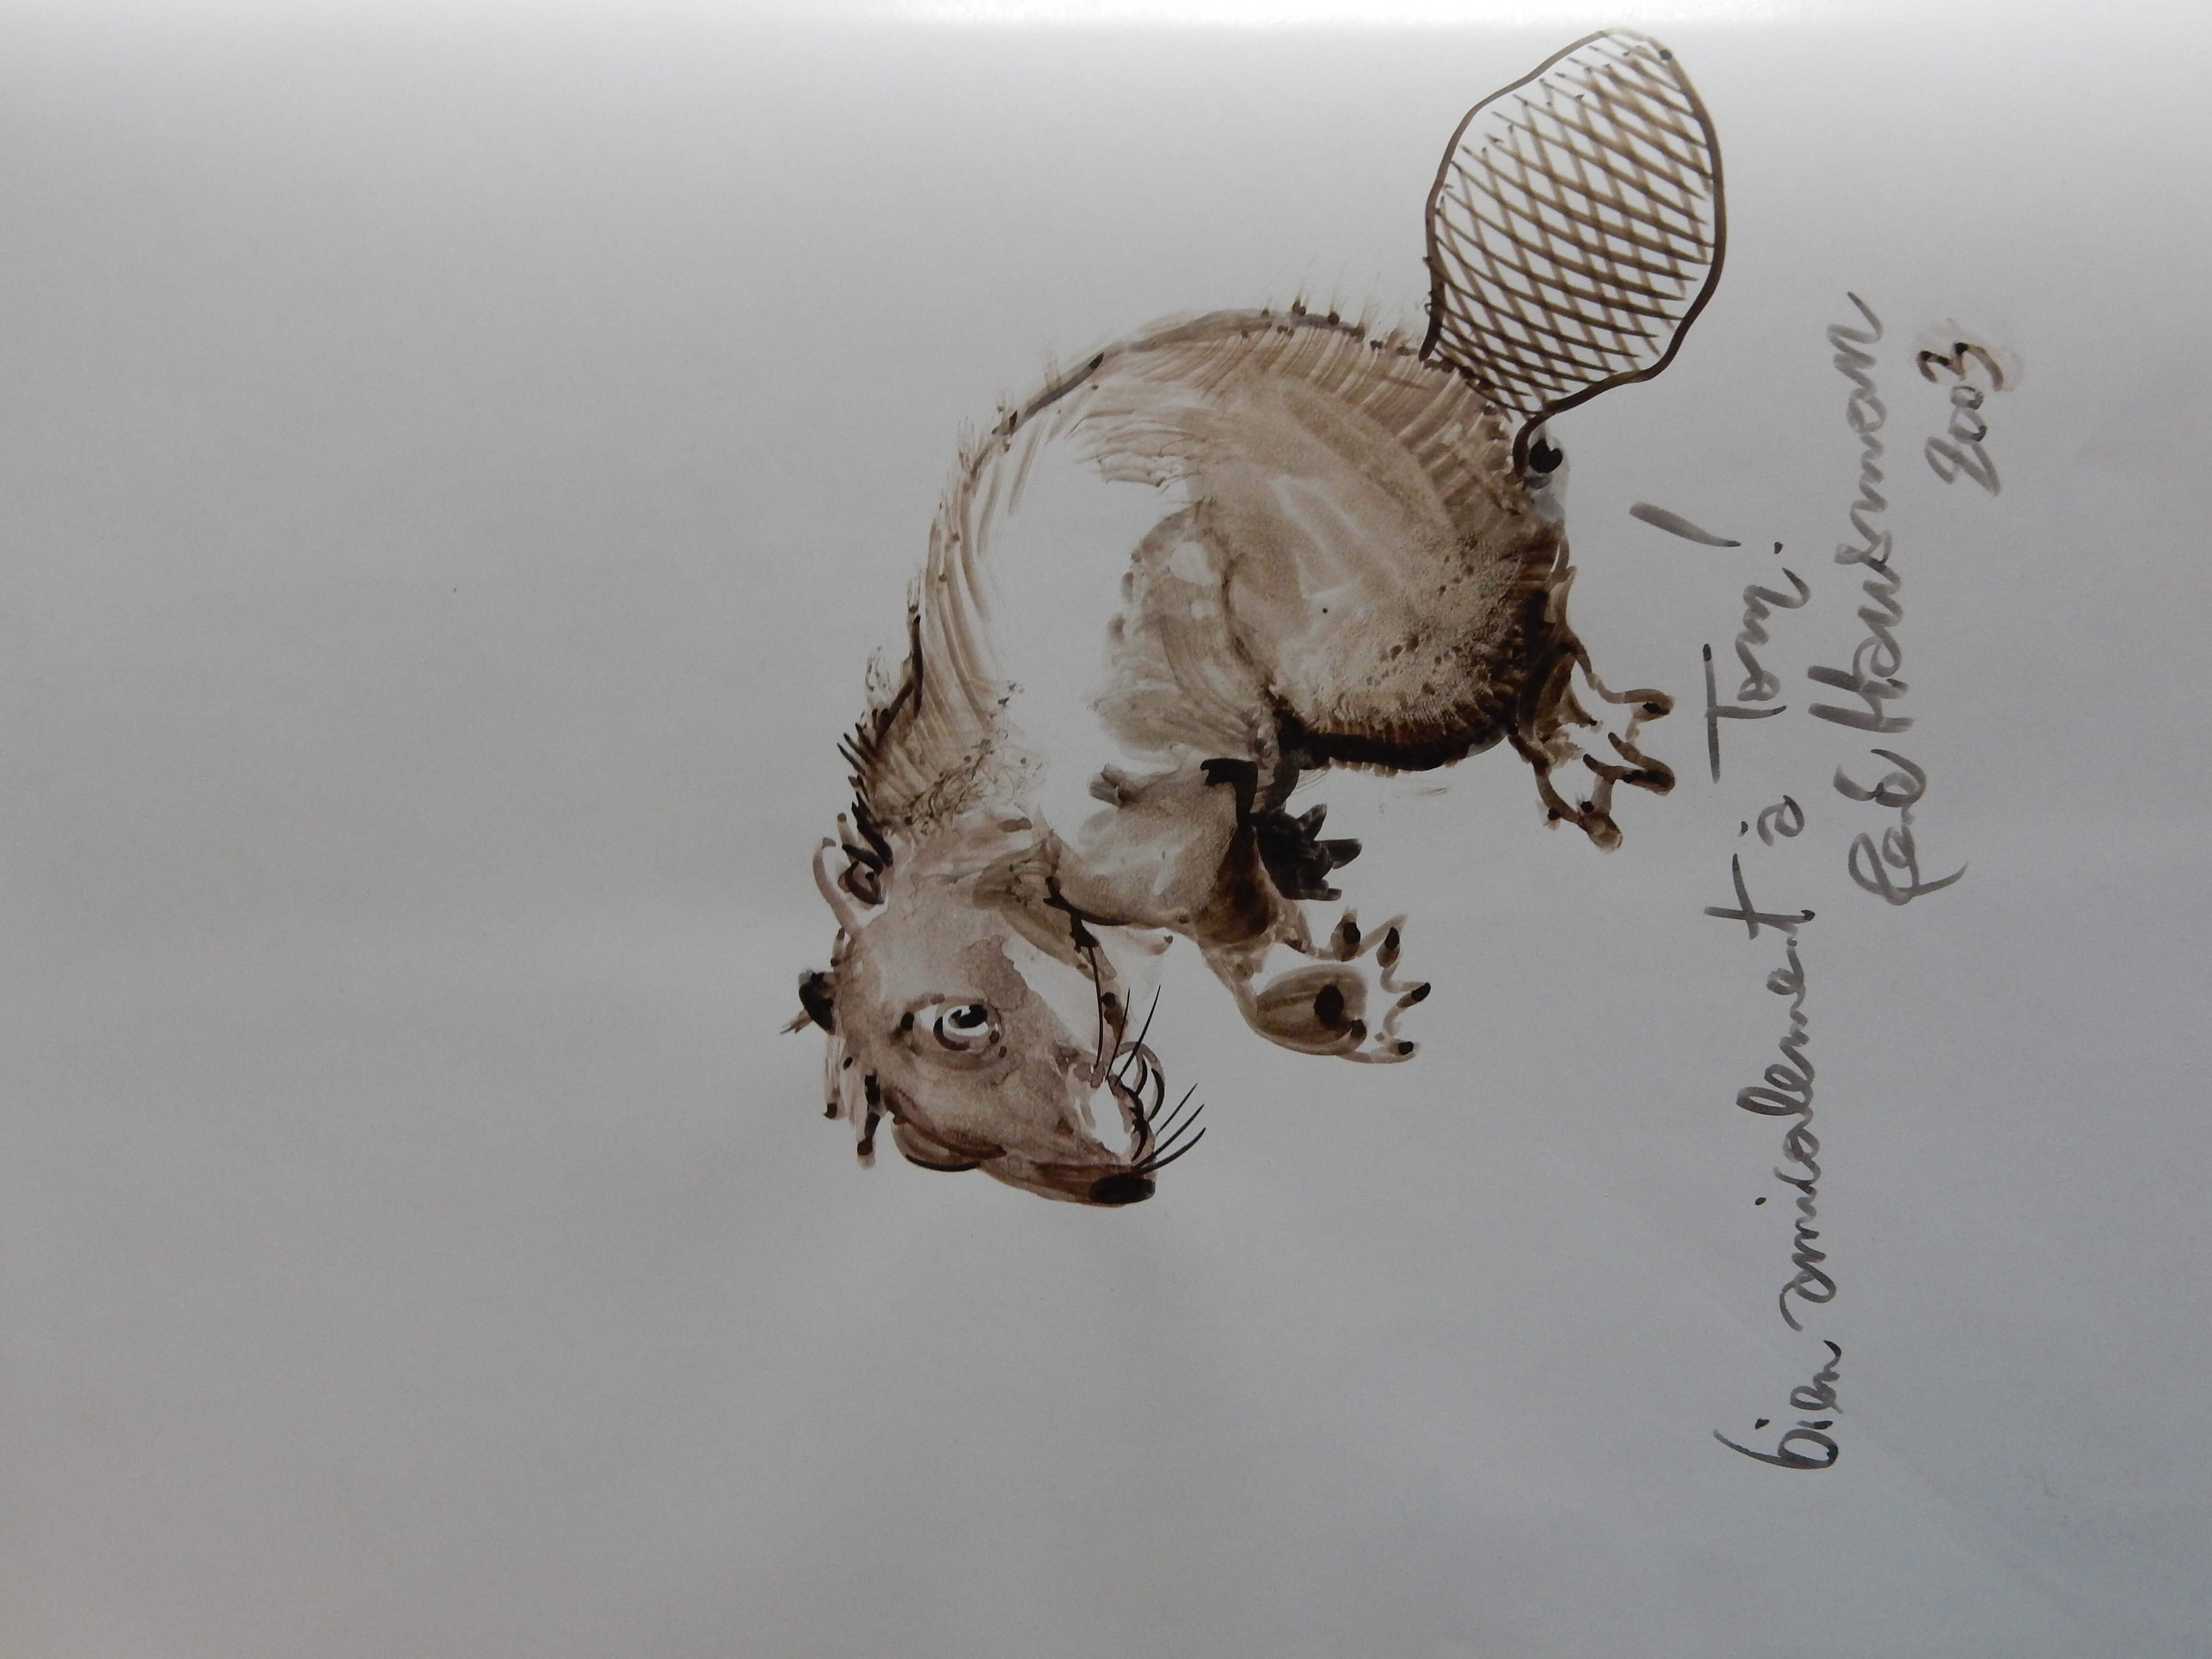 bien amicalement à Tom!
René Hausman
2003